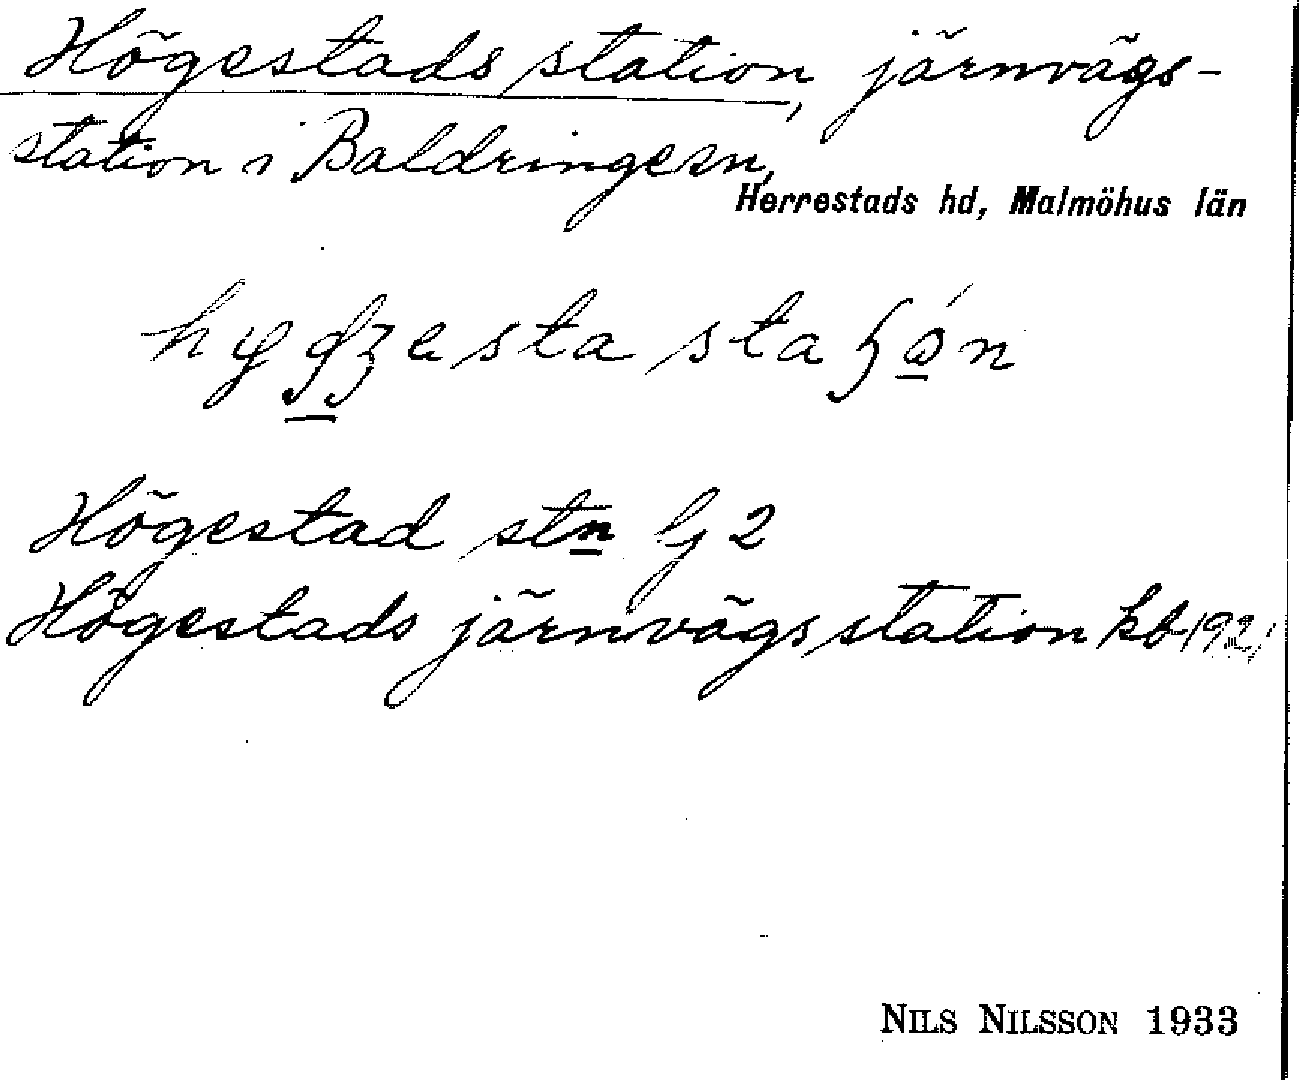 Högestads station, järnvägs-
station i Baldringe sn,
Herrestads hd, Malmöhus län
Högestad stn Lj 2
Högestads järnvägsstation kb 1921
NILS NILSSON 1933